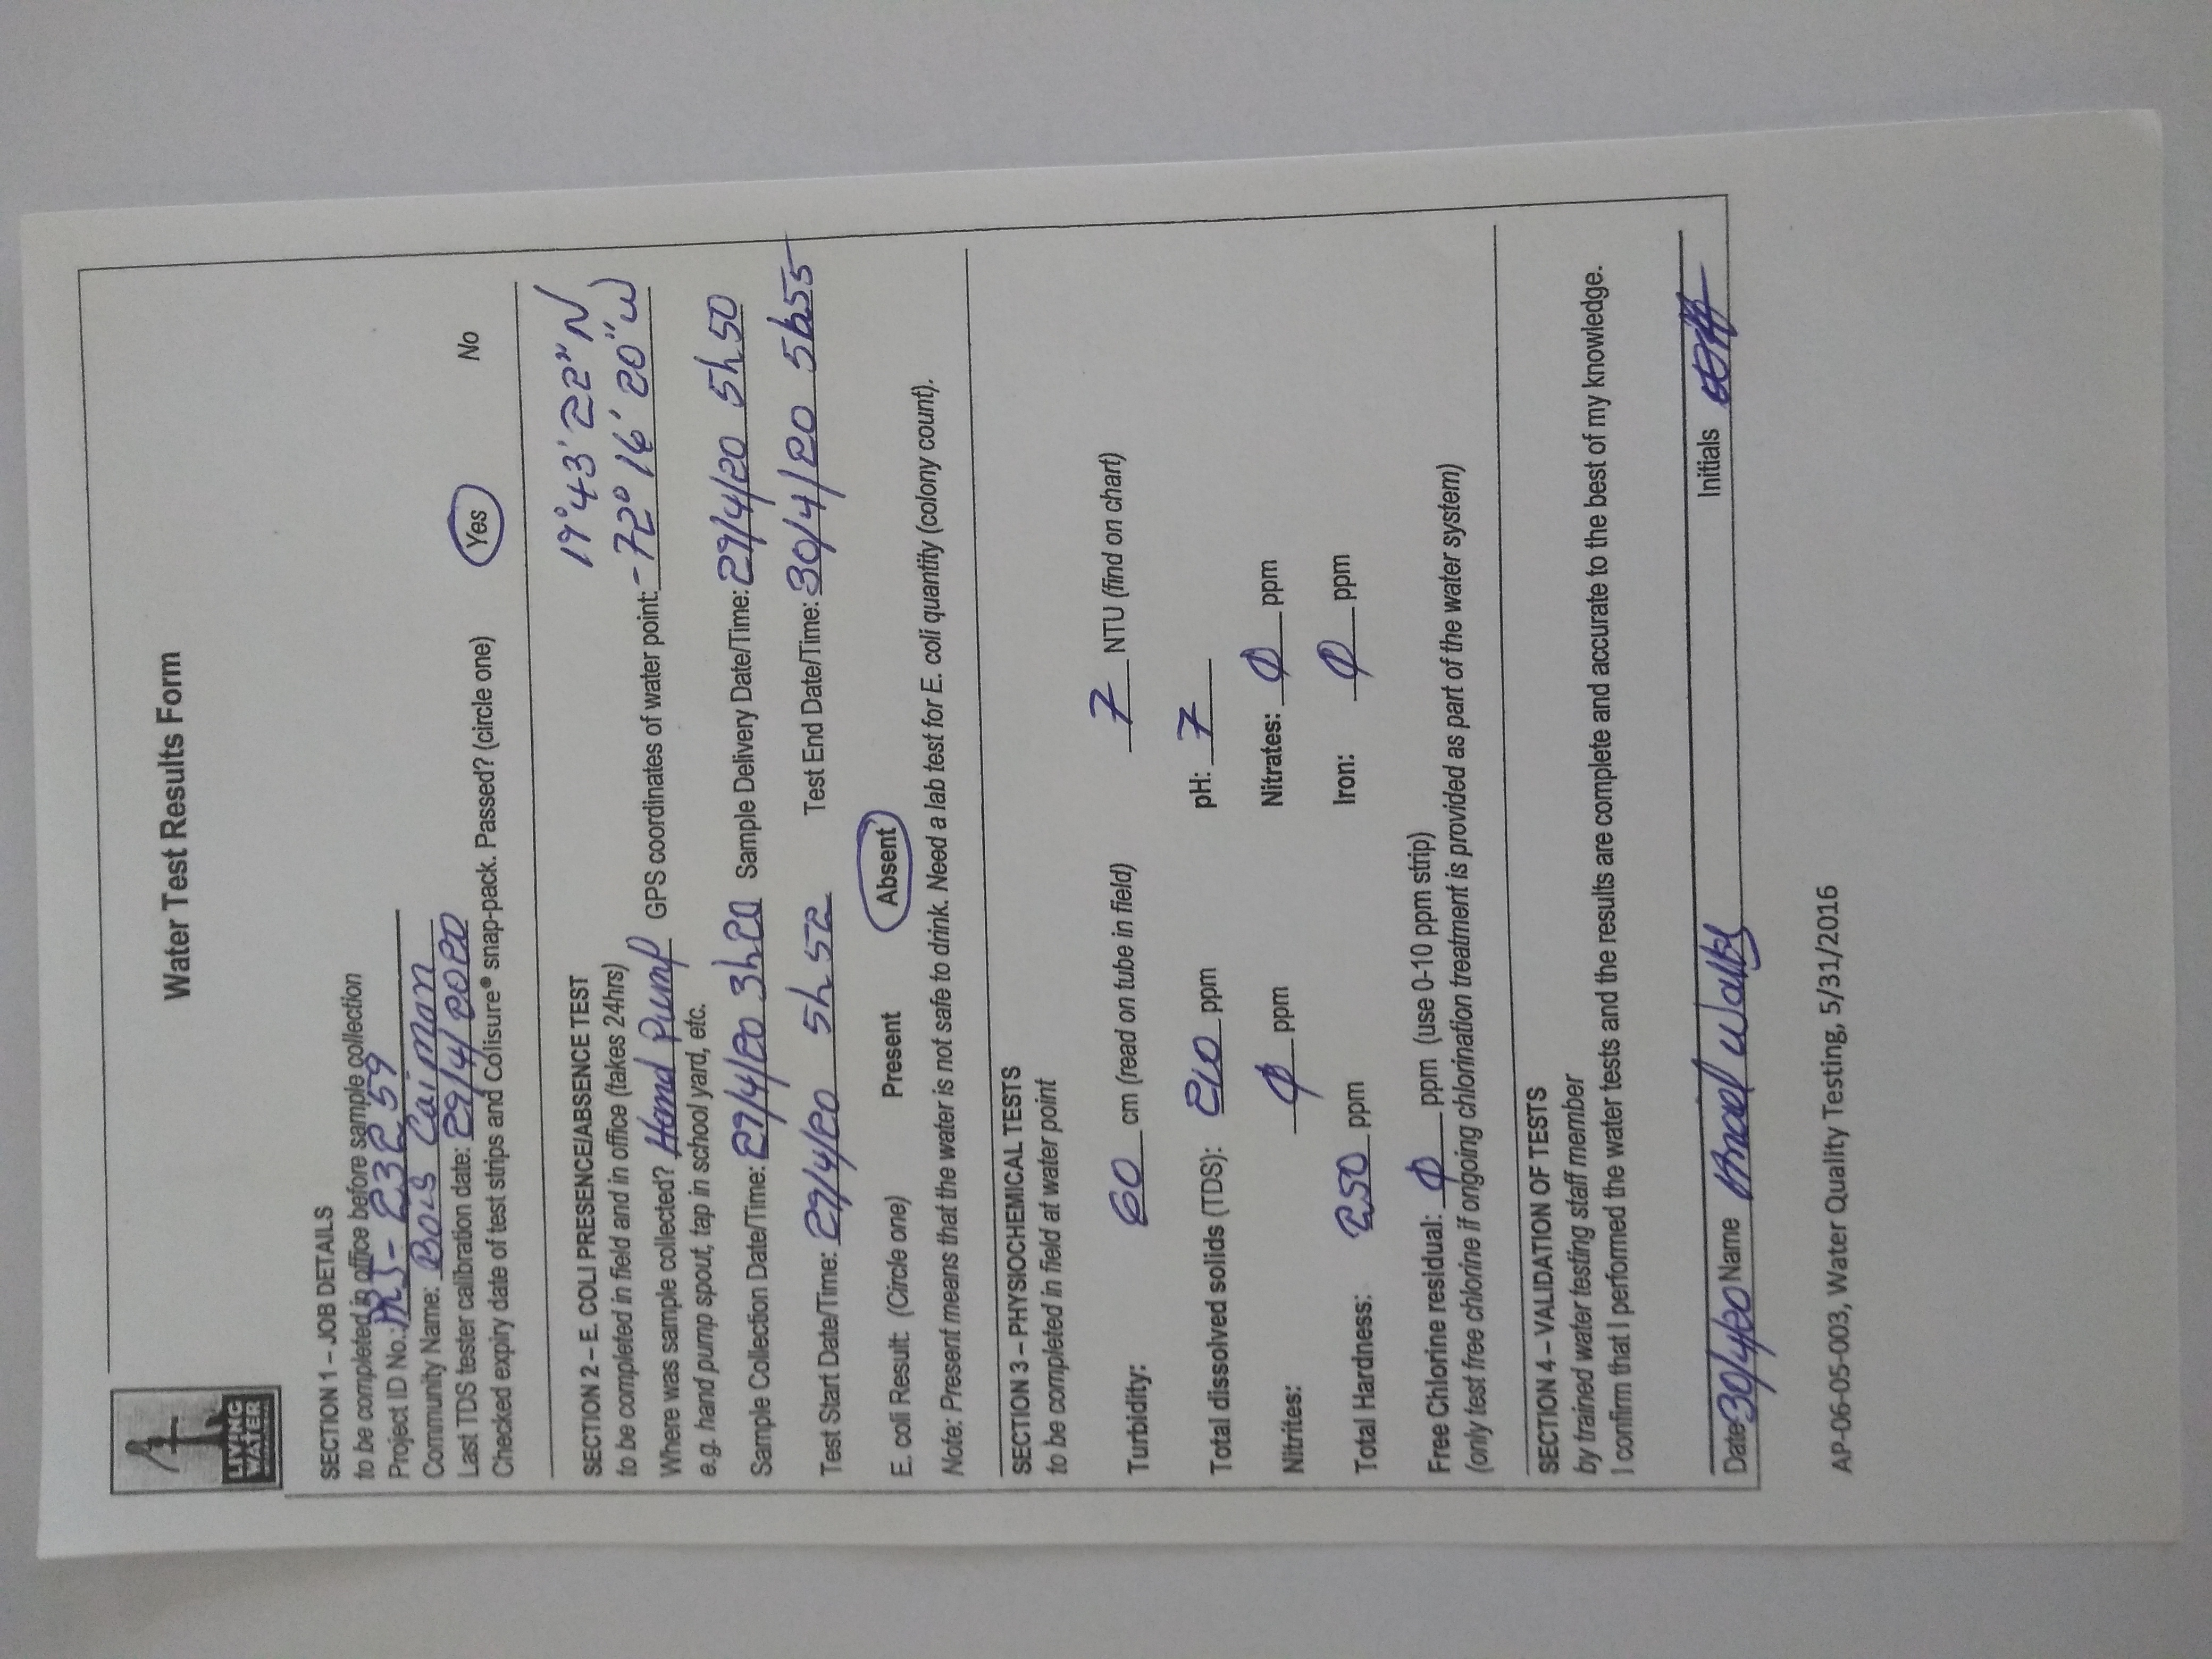 LIVING
WATER
INTERNATIONAL
Water Test Results Form
SECTION 1 – JOB DETAILS
to be completed in office before sample collection
Project ID No.: PRJ-23259
Community Name: Bois Caiman
Last TDS tester calibration date: 29/4/2020
Checked expiry date of test strips and Colisure® snap-pack. Passed? (circle one) Yes No
SECTION 2 – E. COLI PRESENCE/ABSENCE TEST
to be completed in field and in office (takes 24hrs)
19°43'22"N
Where was sample collected? Hand Pump GPS coordinates of water point: -72°16'20"W
e.g. hand pump spout, tap in school yard, etc.
Sample Collection Date/Time: 29/4/20 3h20 Sample Delivery Date/Time: 29/4/20 5h50
Test Start Date/Time: 29/4/20 5h52 Test End Date/Time: 30/4/20 5h55
E. coli Result: (Circle one) Present Absent
Note: Present means that the water is not safe to drink. Need a lab test for E. coli quantity (colony count).
SECTION 3 – PHYSIOCHEMICAL TESTS
to be completed in field at water point
Turbidity: 60 cm (read on tube in field) 7 NTU (find on chart)
Total dissolved solids (TDS): 210 ppm pH: 7
Nitrites: Ø ppm Nitrates: Ø ppm
Total Hardness: 250 ppm Iron: Ø ppm
Free Chlorine residual: Ø ppm (use 0-10 ppm strip)
(only test free chlorine if ongoing chlorination treatment is provided as part of the water system)
SECTION 4 – VALIDATION OF TESTS
by trained water testing staff member
I confirm that I performed the water tests and the results are complete and accurate to the best of my knowledge.
Date 30/4/20 Name Initials
AP-06-05-003, Water Quality Testing, 5/31/2016